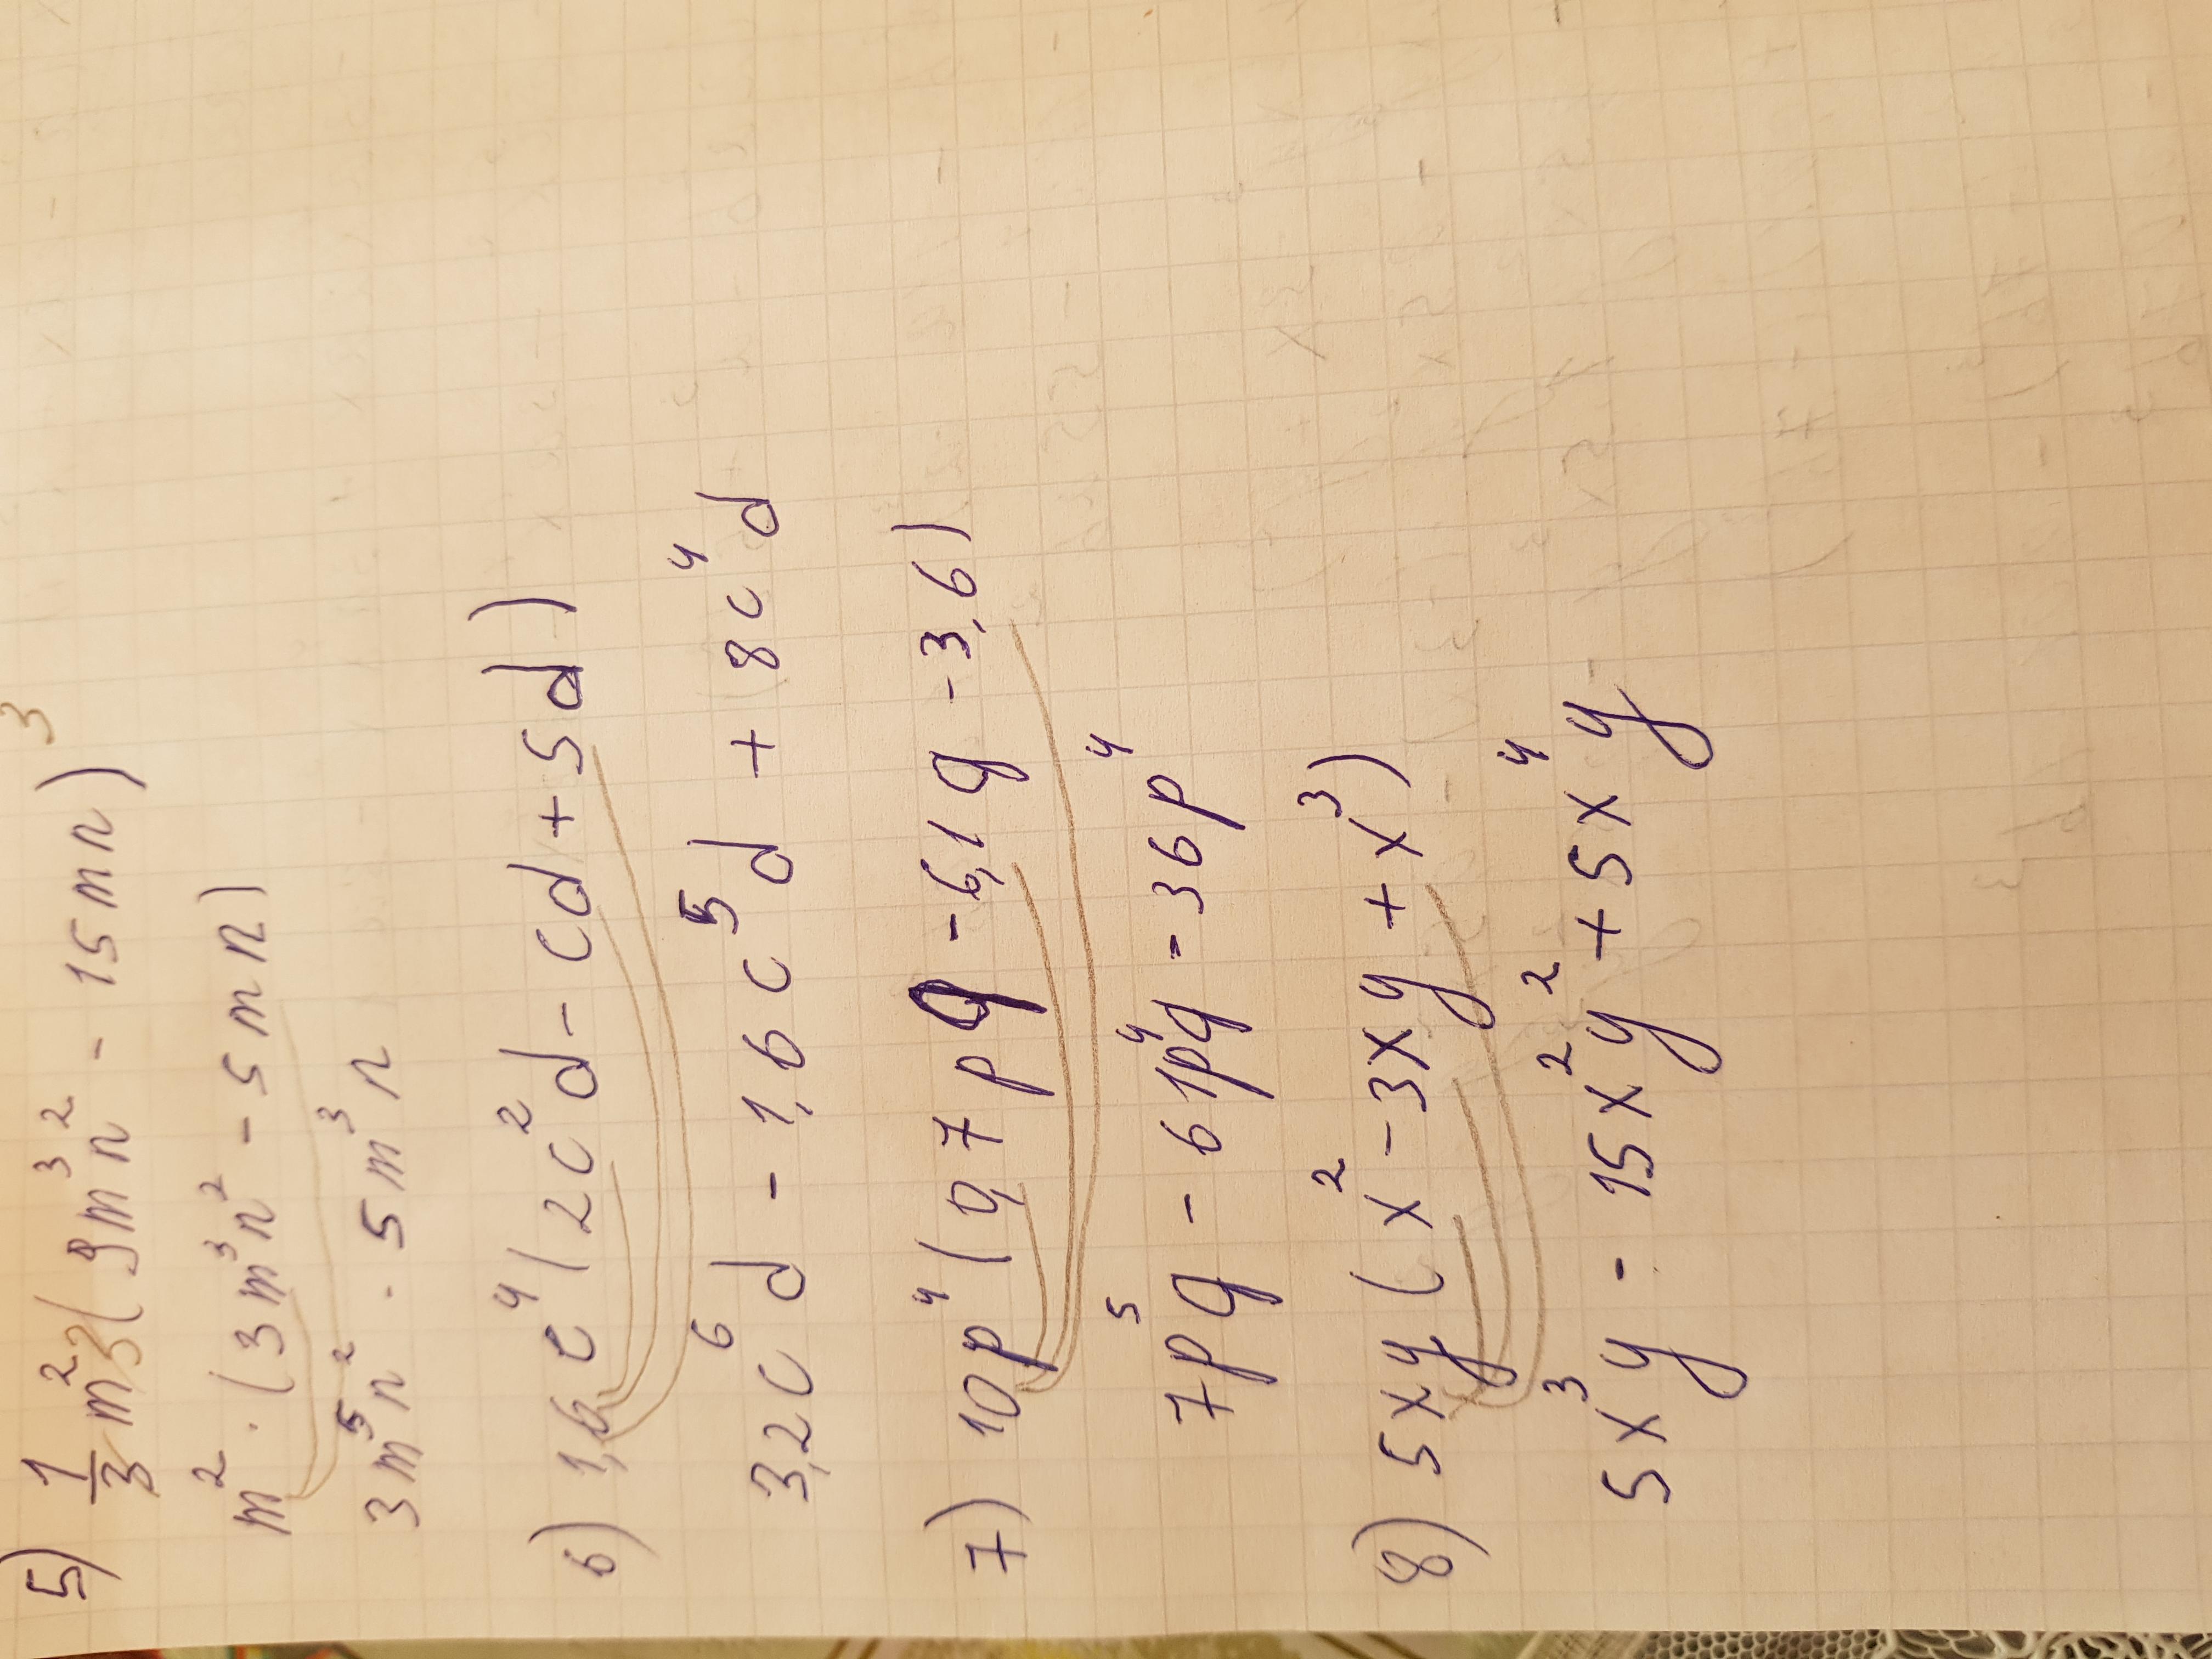 5) 1/3 m² 3(9m³n² - 15mn) 3
m² · (3m³n² - 5mn)
3m⁵n² · 5m³n
6) 1,6c⁴(2c²d - cd + 5d)
3,2c⁶d - 1,6c⁵d + 8c⁴d
7) 10p⁴(0,7pq - 6,1q - 3,6)
7p⁵q - 61p⁴q - 36p⁴
8) 5xy(x² - 3xy + x³)
5x³y - 15x²y² + 5x⁴y